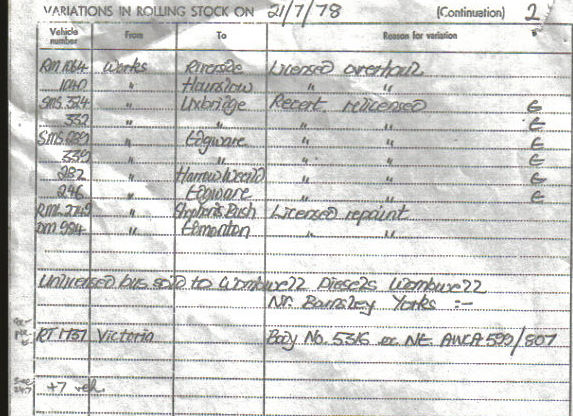 VARIATIONS IN ROLLING STOCK ON 21/7/78 (Continuation) 2
Vehicle number From To Reason for variation
RM 1064 Works Riverside Licensed overhaul
1040 " Hounslow " "
SMS 324 " Uxbridge Recert relicensed E
332 " " " " E
SMS 289 " Edgware " " E
339 " " " " E
282 " Harrow Weald " " E
296 " Edgware " " E
RML 2749 " Shepherds Bush Licensed repaint
DM 984 " Edmonton " "
Unlicensed bus sold to Wombwell Diesels Wombwell
Nr. Barnsley Yorks :-
RT 1737 Victoria Body No. 5316 ex NE AWCA 599/807
+7 veh.